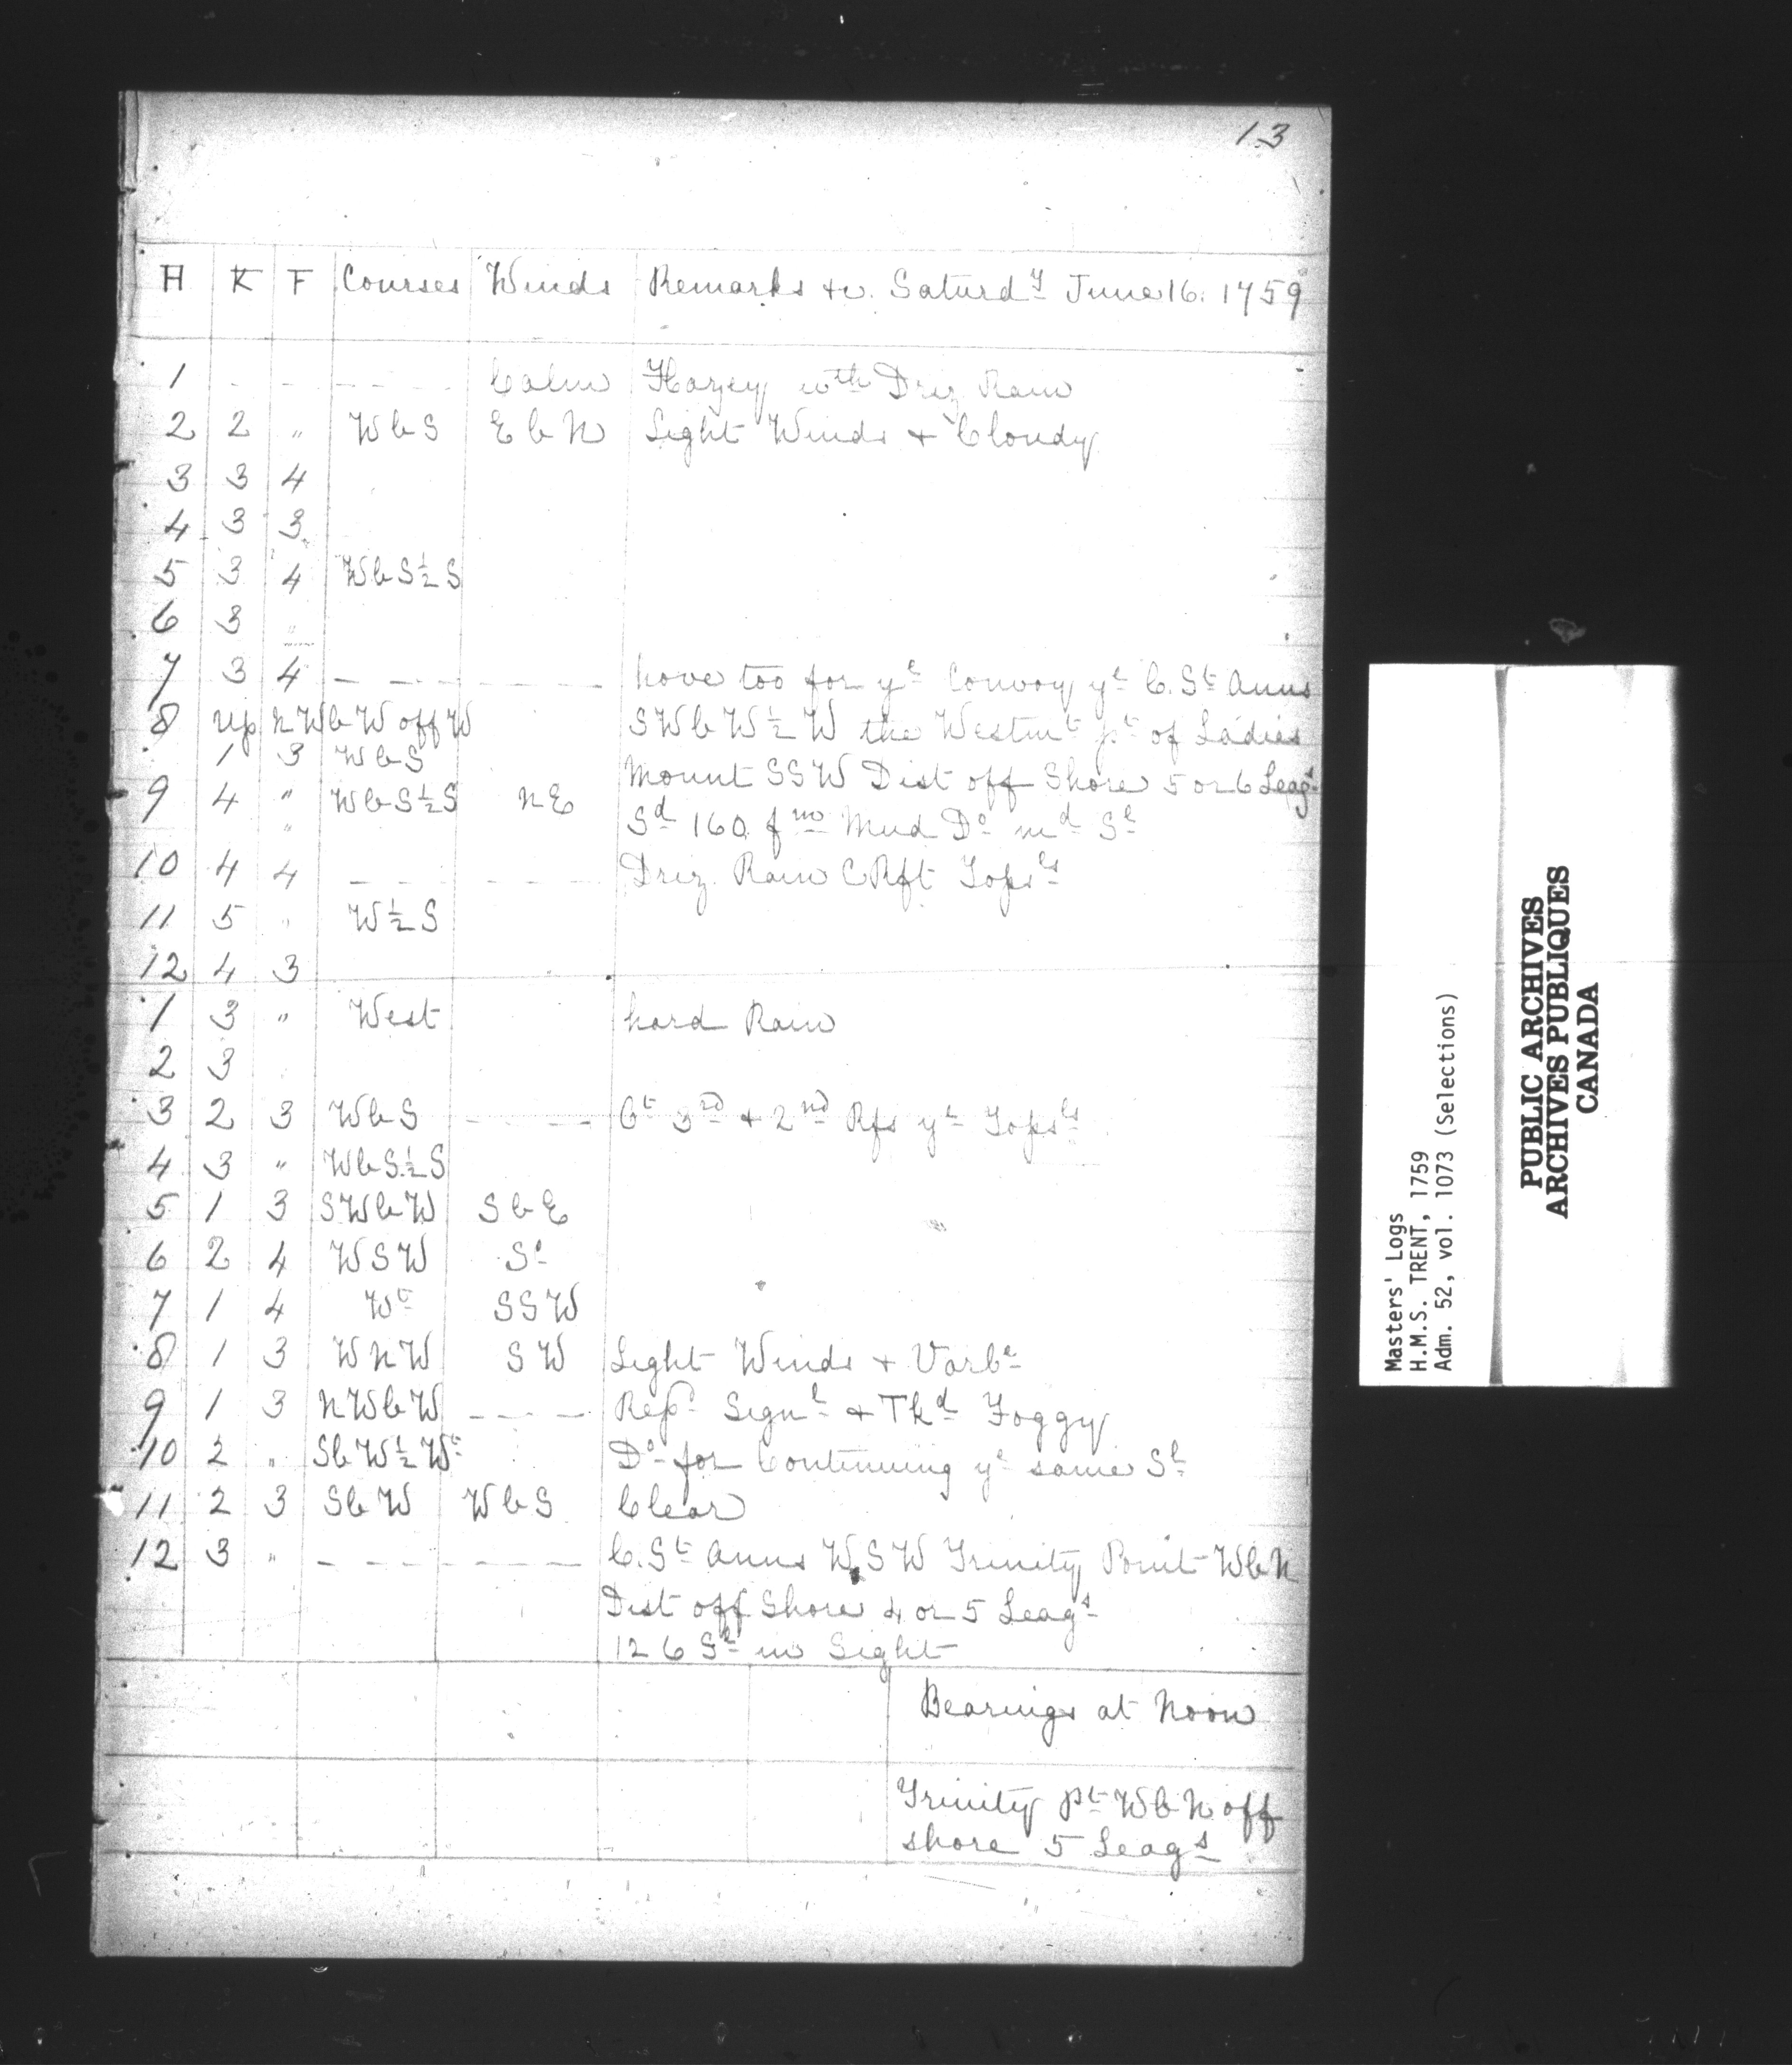 13
H K F Courses Winds Remarks &c. Saturdy June 16. 1759
1 - - - - - - Calm Hazey wth Driz Rain
2 2 " WbS EbN Light Winds & Cloudy
3 3 4
4 3 3
5 3 4 WbS½S
6 3 "
7 3 4 - - - - - - hove too for ye Convoy ye C. St Anns
8 up NWbW off W SWbW½W the Westmt pt of Ladies
1 3 WbS Mount SSW Dist off Shore 5 or 6 Leags
9 4 " WbS½S NE Sd 160 fm Mud Do md Sl
10 4 4 - - - - - - Driz. Rain C Rft Topsls
11 5 " W½S
12 4 3
1 3 " West hard Rain
2 3
3 2 3 WbS - - - - 6t 3rd & 2nd Rfs ye Topsls
4 3 " WbS½S
5 1 3 SWbW SbE
6 2 4 WSW So
7 1 4 Wt SSW
8 1 3 WNW SW Light Winds & Varbe
9 1 3 NWbW - - - - Repd Signl & Tkd Foggy
10 2 " SbW½Wt Do for Continuing ye same Sl
11 2 3 SbW WbS Clear
12 3 " - - - - - - C. St Anns WSW Trinity Point WbN
Dist off Shore 4 or 5 Leags
126 Sl in Sight
Bearings at Noon
Trinity pt WbN off
shore 5 Leags
Masters' Logs
H.M.S. TRENT, 1759
Adm. 52, vol. 1073 (Selections)
PUBLIC ARCHIVES
ARCHIVES PUBLIQUES
CANADA